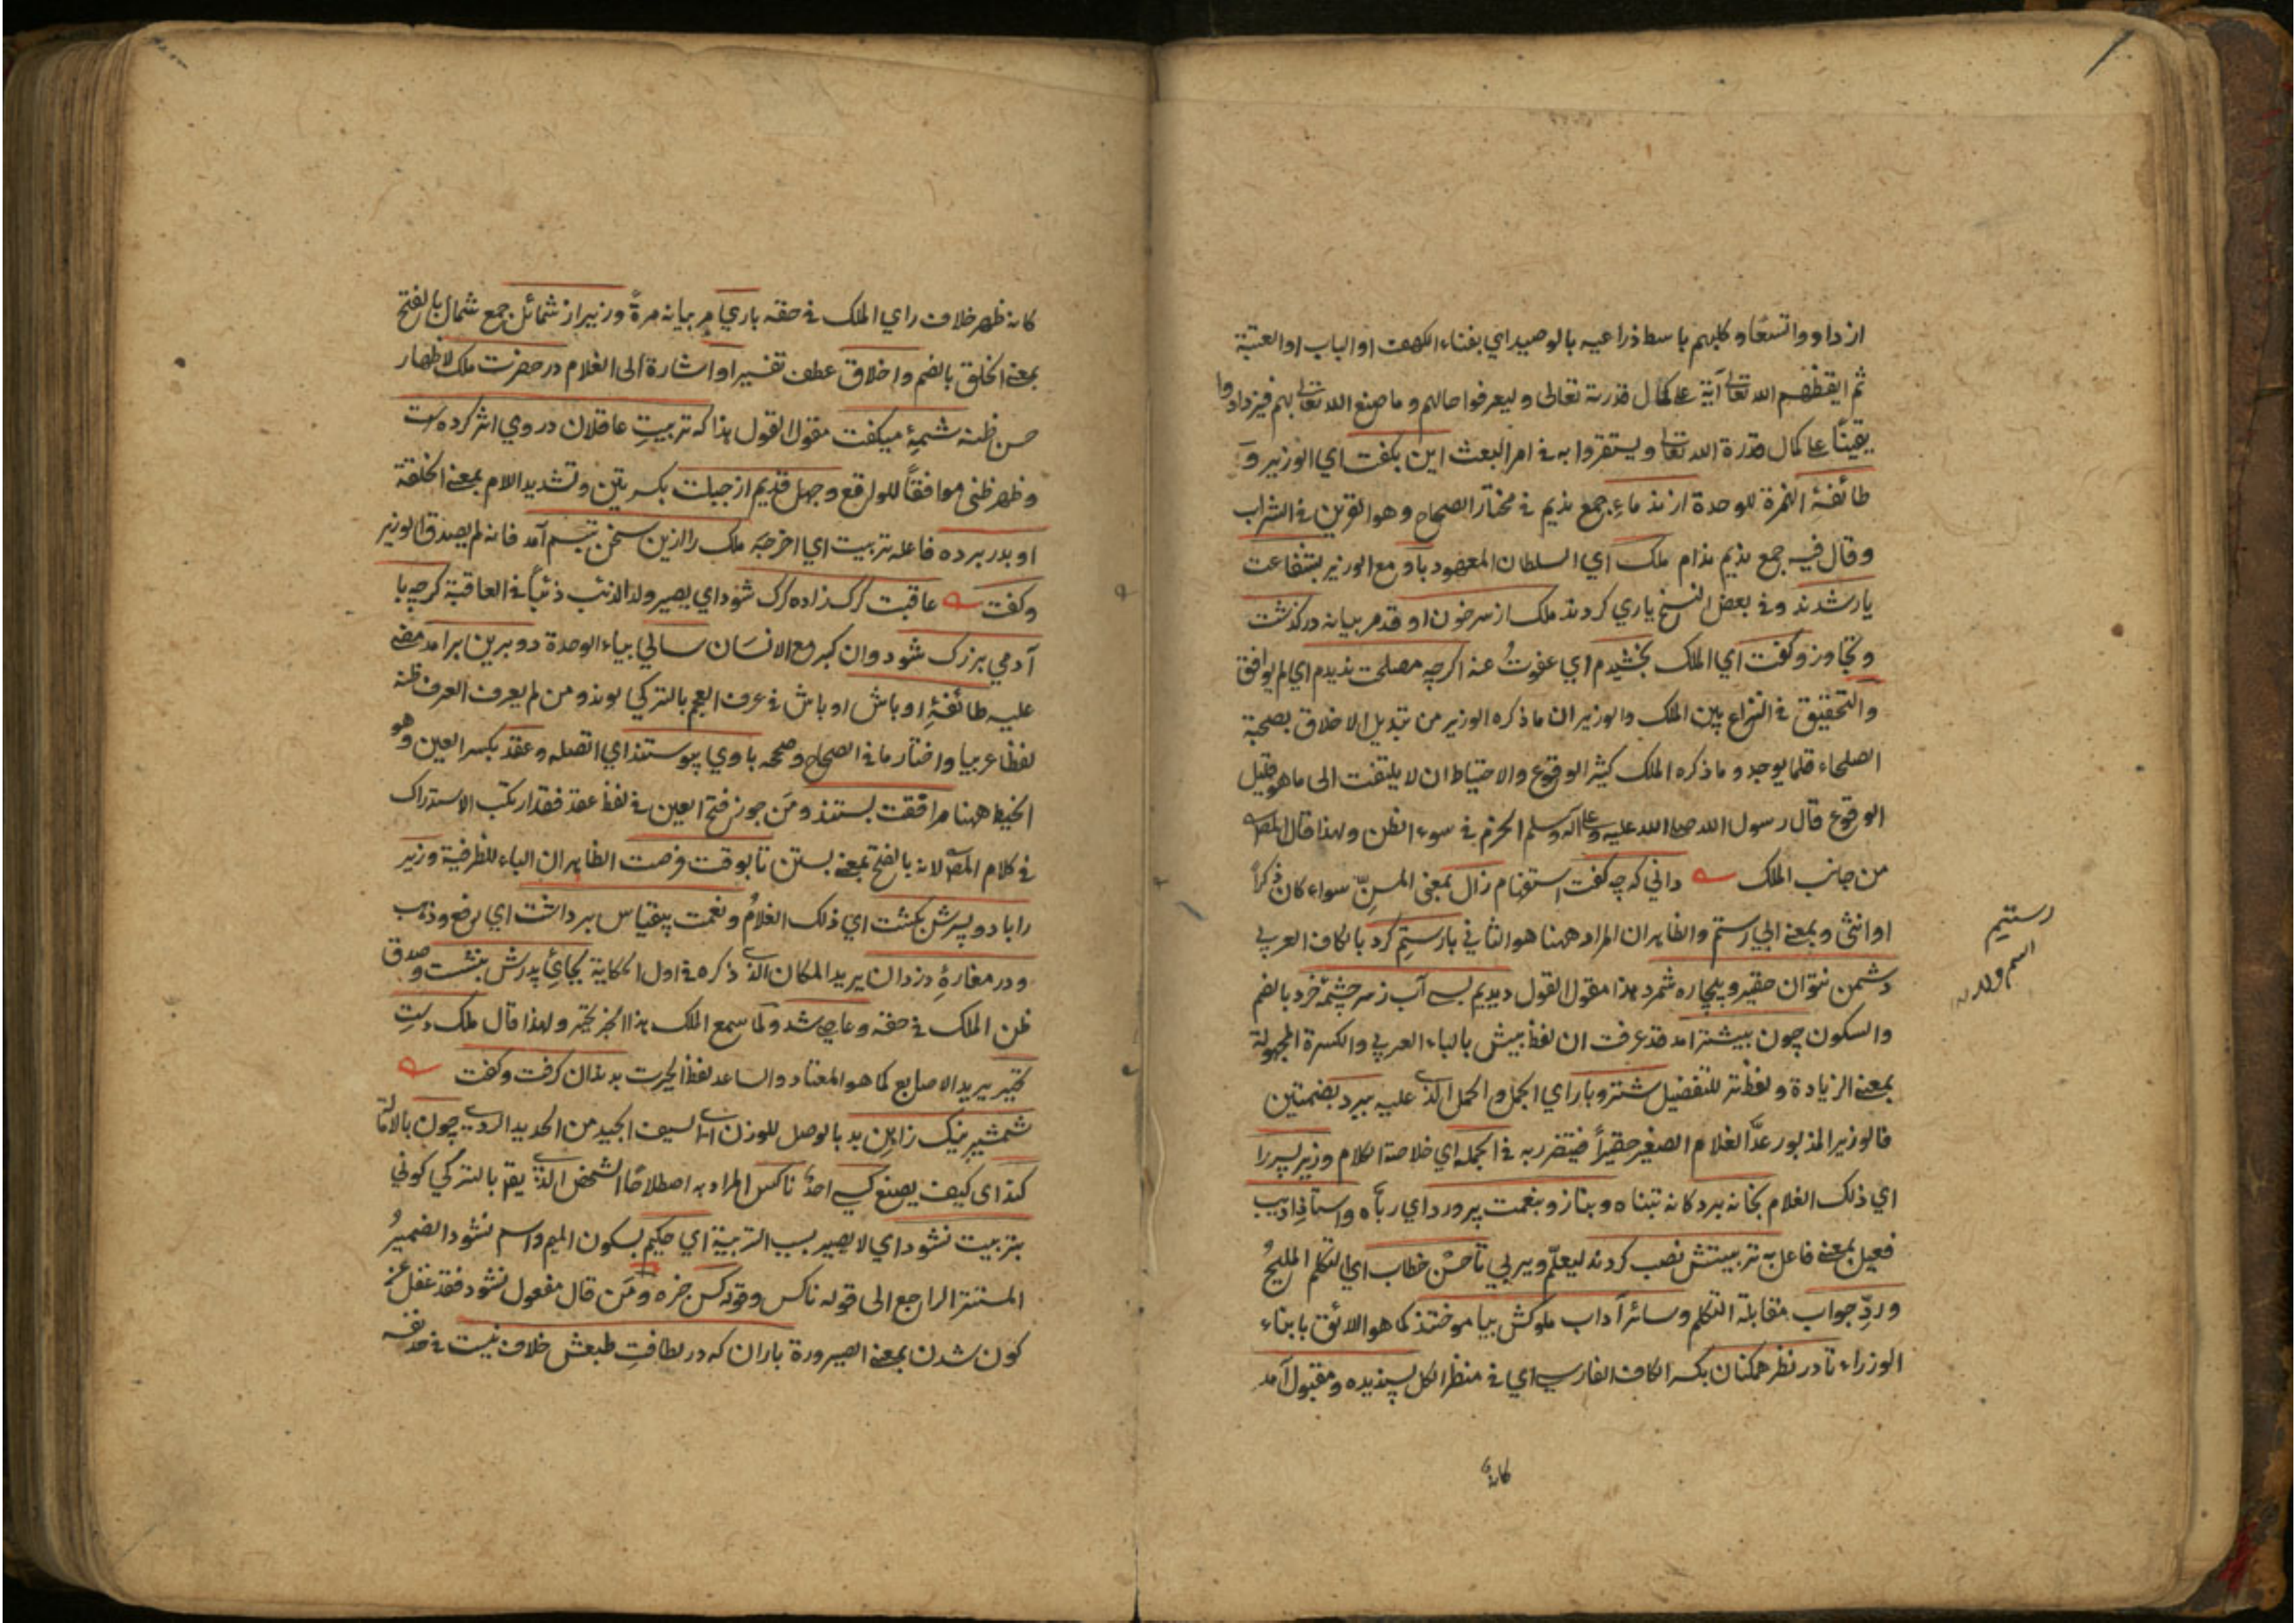 ازدادوا تسعا وكلبهم باسط ذراعيه بالوصيد اي بفناء الكهف او الباب او العتبة
ثم ايقظهم الله تعالى آية على كمال قدرته تعالى وليعرفوا حالهم وما صنع الله تعالى بهم فيزدادوا
يقينًا على كمال قدرة الله تعالى ويستقروا به في امر البعث اين بكفت اي الوزير و
طائفهٔ للوحدة از ندماء جمع نديم في مختار الصحاح وهو القرين في الشراب
وقال فيه جمع نديم ندام ملك اي السلطان المعهود باو مع الوزير بشفاعت
يار شدند وفي بعض النسخ ياري كردند ملك از سر خون او قد مر بيانه دركذشت
وتجاوز وكفت اي الملك بخشيدم اي عفوتُ عنه اكرچه مصلحت نديدم اي لم يوافق
والتحقيق في النزاع بين الملك والوزير ان ما ذكره الوزير من تبديل الاخلاق بصحبة
الصلحاء قلما يوجد وما ذكره الملك كثير الوقوع والاحتياط ان لا يلتفت الى ما هو قليل
الوقوع قال رسول الله صلى الله عليه وعلى آله وسلم الحزم في سوء الظن ولهذا قال المصـ
من جانب الملك داني كه چه كفت استفهام زال بمعنى المسنّ سواء كان ذكرًا
او انثى وبمعنى ابي رستم والظاهر ان المراد ههنا هو الثاني با رستمِ كرد بالكاف العربي
دشمن نتوان حقير وبيچاره شمرد هذا مقول القول ديديم بسي آب ز سر چشمهٔ خرد بالضم
والسكون چون بيشتر آمد قد عرفت ان لفظ بيش بالباء العربي والكسرة المجهولة
بمعنى الزيادة ولفظ تر للتفضيل شتر وبار اي الجمل والحمل الذي عليه ببرد بضمتين
فالوزير المذبور عدّ الغلام الصغير حقيرًا فيتضرر به في الجمله اي خلاصة الكلام وزير پسر را
اي ذلك الغلام بخانه برد كانه تبناه وبناز وبنعمت پرورد اي ربّاه واستاذِ اديب
فعيل بمعنى فاعل به تربيتش نصب كردند ليعلّم ويربي تا حسْن خطاب اي التكلم المليحُ
وردِّ جواب مقابلة التكلم وسائر آداب ملوكش بياموختند كما هو اللائق بابناء
الوزراء تا در نظر همكنان بكسر الكاف الفارسي اي في منظر الكل پسنديده ومقبول آمد
كانه
رستم
اسم ولد
كانه ظهر خلاف راي الملك في حقه باري مر بيانه مرةً وزير از شمائل جمع شمال بالفتح
بمعنى الخلق بالضم واخلاق عطف تفسير او اشارة الى الغلام در حضرت ملك لاظهار
حسن ظنه شمهٔ ميكفت مقول القول هذا كه تربيتِ عاقلان در وي اثر كرده است
وظهر ظني موافقًا للواقع وجهل قديم از جبلت بكسرتين وتشديد اللام بمعنى الخلقة
او بدر برده فاعله تربيت اي اخرجَه ملك را ازين سخن تبسم آمد فانه لم يصدق الوزير
وكفت عاقبت كرك زاده كرك شود اي يصير ولد الذئب ذئبًا في العاقبة كرچه با
آدمي بزرك شود وان كبر مع الانسان سالي بياء الوحدة دو برين برآمد مضى
عليه طائفهٔ اوباش اوباش في عرف العجم بالتركي بوند ومن لم يعرف العرف ظنه
لفظا عربيا واختار ما في الصحاح وصححه باوي پيوستند اي اتصله وعقد بكسر العين وهو
الخيط ههنا مرافقت بستند ومَن جوز فتح العين في لفظ عقد فقد ارتكب الاستدراك
في كلام المصـ لانه بالفتح بمعنى بستن تا بوقت فرصت الظاهر ان الباء للظرفية وزير
را با دو پسرش بكشت اي ذلك الغلامُ ونعمت بيقياس برداشت اي رفع وذهب
ودر مغارهٔ دزدان يريد المكان الذي ذكره في اول الحكاية بجاي پدرش بنشست وصدق
ظن الملك في حقه وعاصي شد ولما سمع الملك هذا الخبر تحير ولهذا قال ملك دستِ
تحير يريد الاصابع كما هو المعتاد والساعد لفظ الحيرت بدندان كرفت وكفت
شمشير نيك زاهن بد بالوصل للوزن اي السيف الجيد من الحديد الردي چون بالامالة
كند اي كيف يصنع كسي احدٌ ناكس المراد به اصطلاحًا الشخص الذي يقع بالتركي كوني
بتربيت نشود اي لا يصير بسبب التربية اي حكيم بسكون الميم واسم نشود الضميرُ
المستتر الراجع الى قوله ناكس وقوله كس خبره ومَن قال مفعول نشود فقد غفل عن
كون شدن بمعنى الصيرورة باران كه در لطافتِ طبعش خلاف نيست في حقه